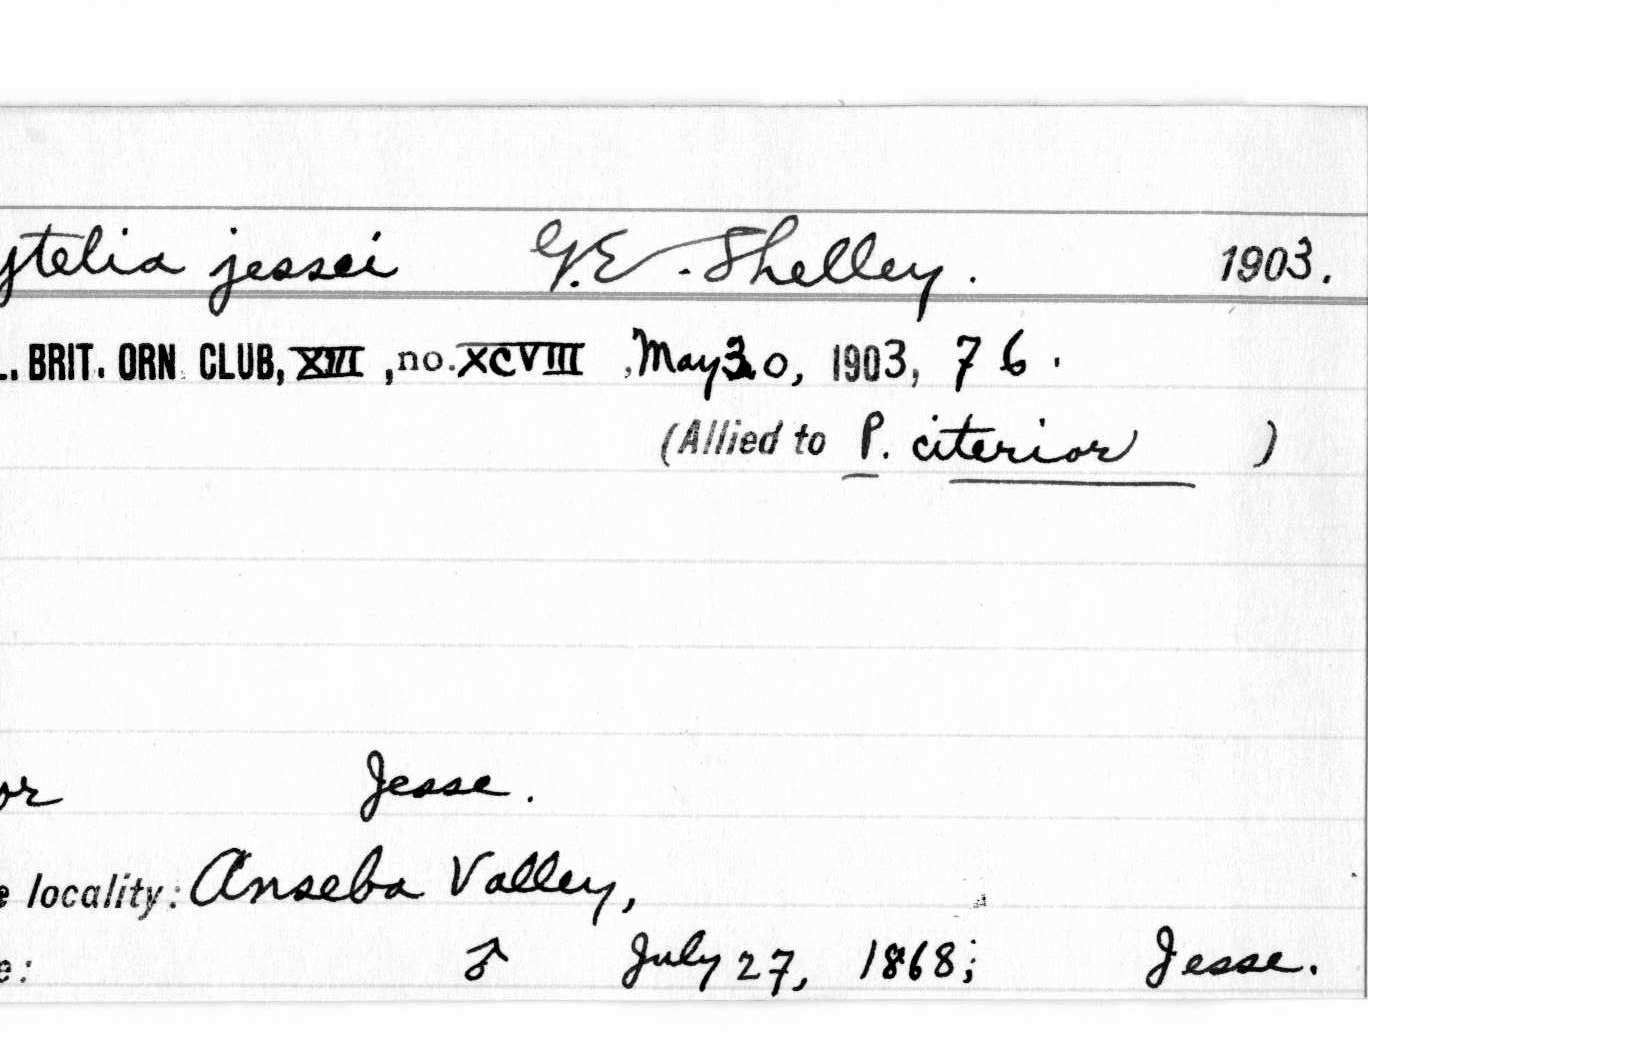 ytelia jessei G.E. Shelley. 1903.
L. BRIT. ORN. CLUB, XIII, no. XCVIII, May 30, 1903, 76.
(Allied to P. citerior )
or Jesse.
e locality: Anseba Valley,
e: ♂ July 27, 1868; Jesse.